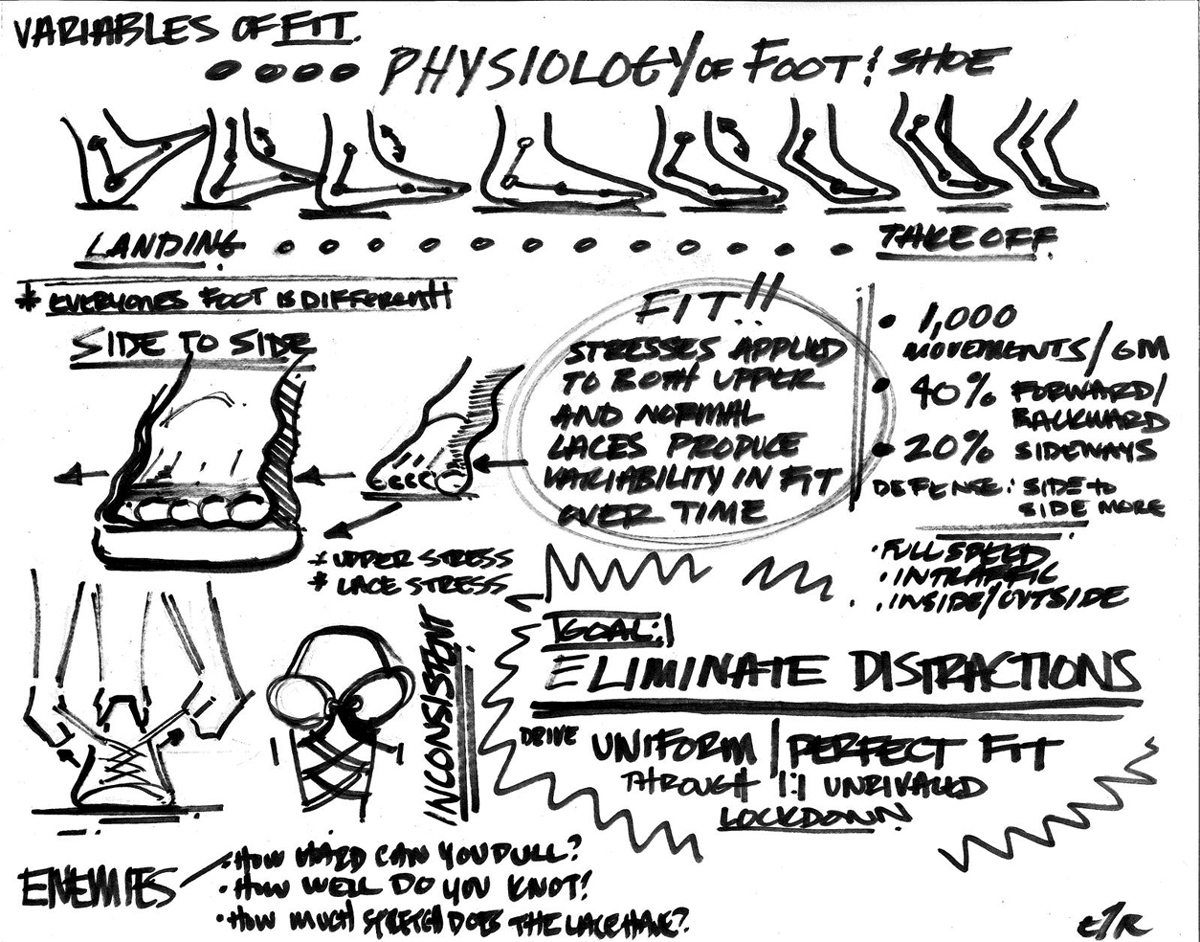 VARIABLES OF FIT.
PHYSIOLOGY OF FOOT & SHOE
LANDING
TAKE OFF
* EVERYONES FOOT IS DIFFERENT!
SIDE TO SIDE
FIT!!
STRESSES APPLIED
TO BOTH UPPER
AND NORMAL
LACES PRODUCE
VARIABILITY IN FIT
OVER TIME
• 1,000
MOVEMENTS/GM
• 40% FORWARD/
BACKWARD
• 20% SIDEWAYS
DEFENSE: SIDE TO
SIDE MORE
• FULL SPEED
• IN TRAFFIC
• INSIDE/OUTSIDE
* UPPER STRESS
* LACE STRESS
INCONSISTENT
GOAL:
ELIMINATE DISTRACTIONS
DRIVE UNIFORM/PERFECT FIT
THROUGH 1:1 UNRIVALED
LOCKDOWN
ENEMIES
• HOW HARD CAN YOU PULL?
• HOW WELL DO YOU KNOT?
• HOW MUCH STRETCH DOES THE LACE HAVE?